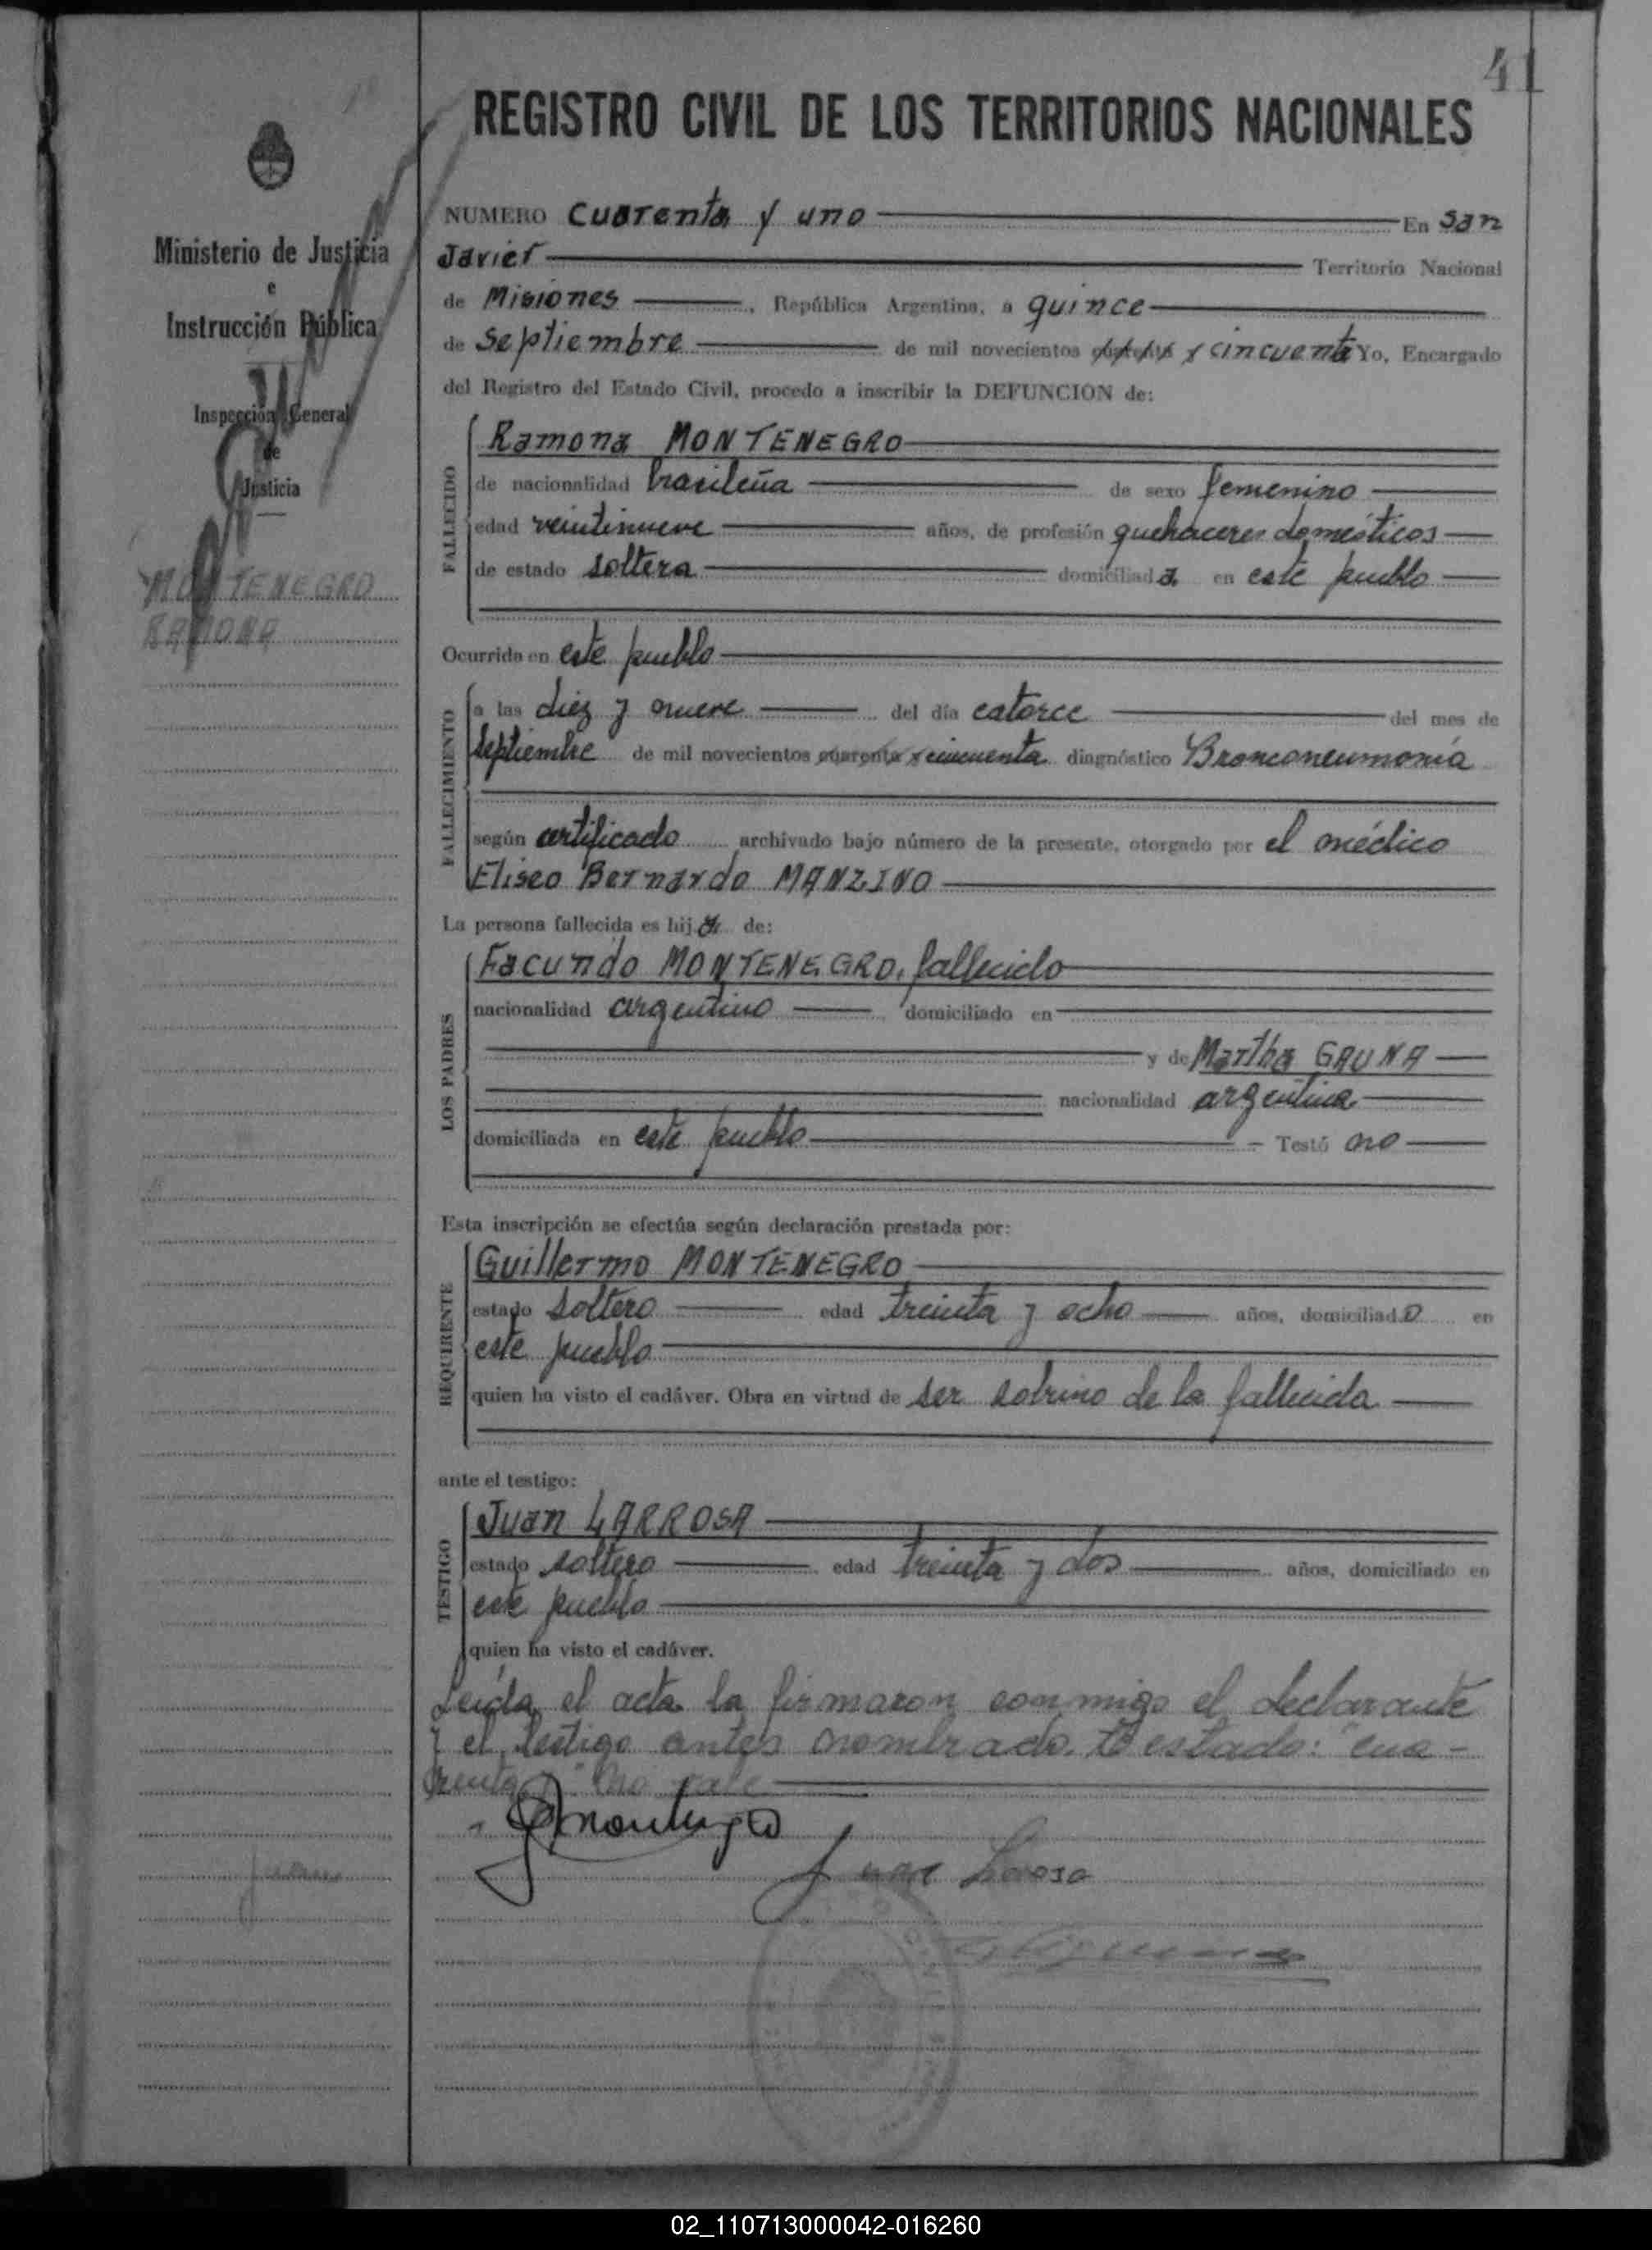 41
REGISTRO CIVIL DE LOS TERRITORIOS NACIONALES
Ministerio de Justicia
e
Instrucción Pública
Inspección General
de
Justicia
MONTENEGRO
RAMONA
NUMERO cuarenta y uno En San
Javier Territorio Nacional
de Misiones, República Argentina, a quince
de septiembre de mil novecientos cuarenta y cincuenta Yo, Encargado
del Registro del Estado Civil, procedo a inscribir la DEFUNCION de:
FALLECIDO
Ramona MONTENEGRO
de nacionalidad brasileña de sexo femenino
edad veintinueve años, de profesión quehaceres domésticos
de estado soltera domiciliada en este pueblo
Ocurrida en este pueblo
FALLECIMIENTO
a las diez y nueve del día catorce del mes de
septiembre de mil novecientos cuarenta y cincuenta diagnóstico Bronconeumonía
según certificado archivado bajo número de la presente, otorgado por el médico
Eliseo Bernardo MANZINO
La persona fallecida es hija de:
LOS PADRES
Facundo MONTENEGRO, fallecido
nacionalidad argentino domiciliado en
y de Martha GAUNA
nacionalidad argentina
domiciliada en este pueblo Testó no
Esta inscripción se efectúa según declaración prestada por:
REQUIRENTE
Guillermo MONTENEGRO
estado soltero edad treinta y ocho años, domiciliado en
este pueblo
quien ha visto el cadáver. Obra en virtud de ser sobrino de la fallecida
ante el testigo:
TESTIGO
Juan LARROSA
estado soltero edad treinta y dos años, domiciliado en
este pueblo
quien ha visto el cadáver.
Leída el acta la firmaron conmigo el declarante
y el testigo antes nombrado. Testado: "cua-
renta y" no vale
GMontenegro
Juan Larosa
02_110713000042-016260